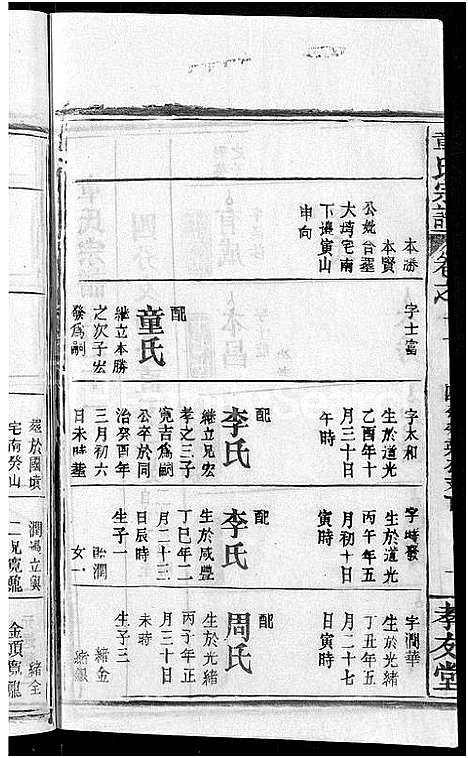 章氏宗譜
卷之十
孝友堂
本勝
本賢
公妣合墓
大塆宅南
下邊寅山
申向
字士富
配
童氏
繼立本勝
之次子宏
發爲嗣
字太和
生於道光
乙酉年十
月三十日
午時
配
李氏
繼立兄宏
孝之三子
寬吉爲嗣
公卒於同
治癸酉年
三月初六
日未時塟
字時發
生於道光
丙午年五
月初十日
寅時
配
李氏
生於咸豐
丁巳年二
月二十三
日辰時
生子一
潤
女一
字潤華
生於光緒
丁丑年五
月二十七
日寅時
配
周氏
生於光緒
丙子年正
月三十日
未時
生子三
緒金
緒銀
塟於國墳
宅南癸山
潤馮立與
二兄寬龍
緒全
金頂寬龍